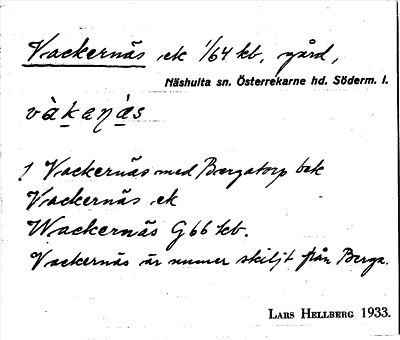 Vackernäs ek 1/64 kb, gård,
Näshulta sn. Österrekarne hd. Söderm. l.
vàkanás
1 Vackernäs med Bergatorp bek
Vackernäs ek
Wackernäs G66 kb.
Vackernäs är numer skiljt från Berga.
LARS HELLBERG 1933.